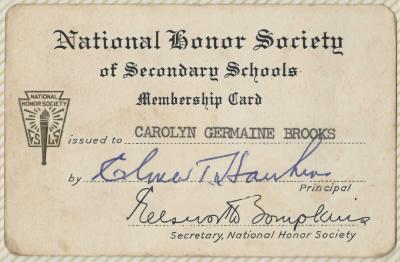 National Honor Society
of Secondary Schools
Membership Card
NATIONAL
HONOR SOCIETY
issued to CAROLYN GERMAINE BROOKS
by Elmer T. Hawkins
Principal
Ellsworth Tompkins
Secretary, National Honor Society